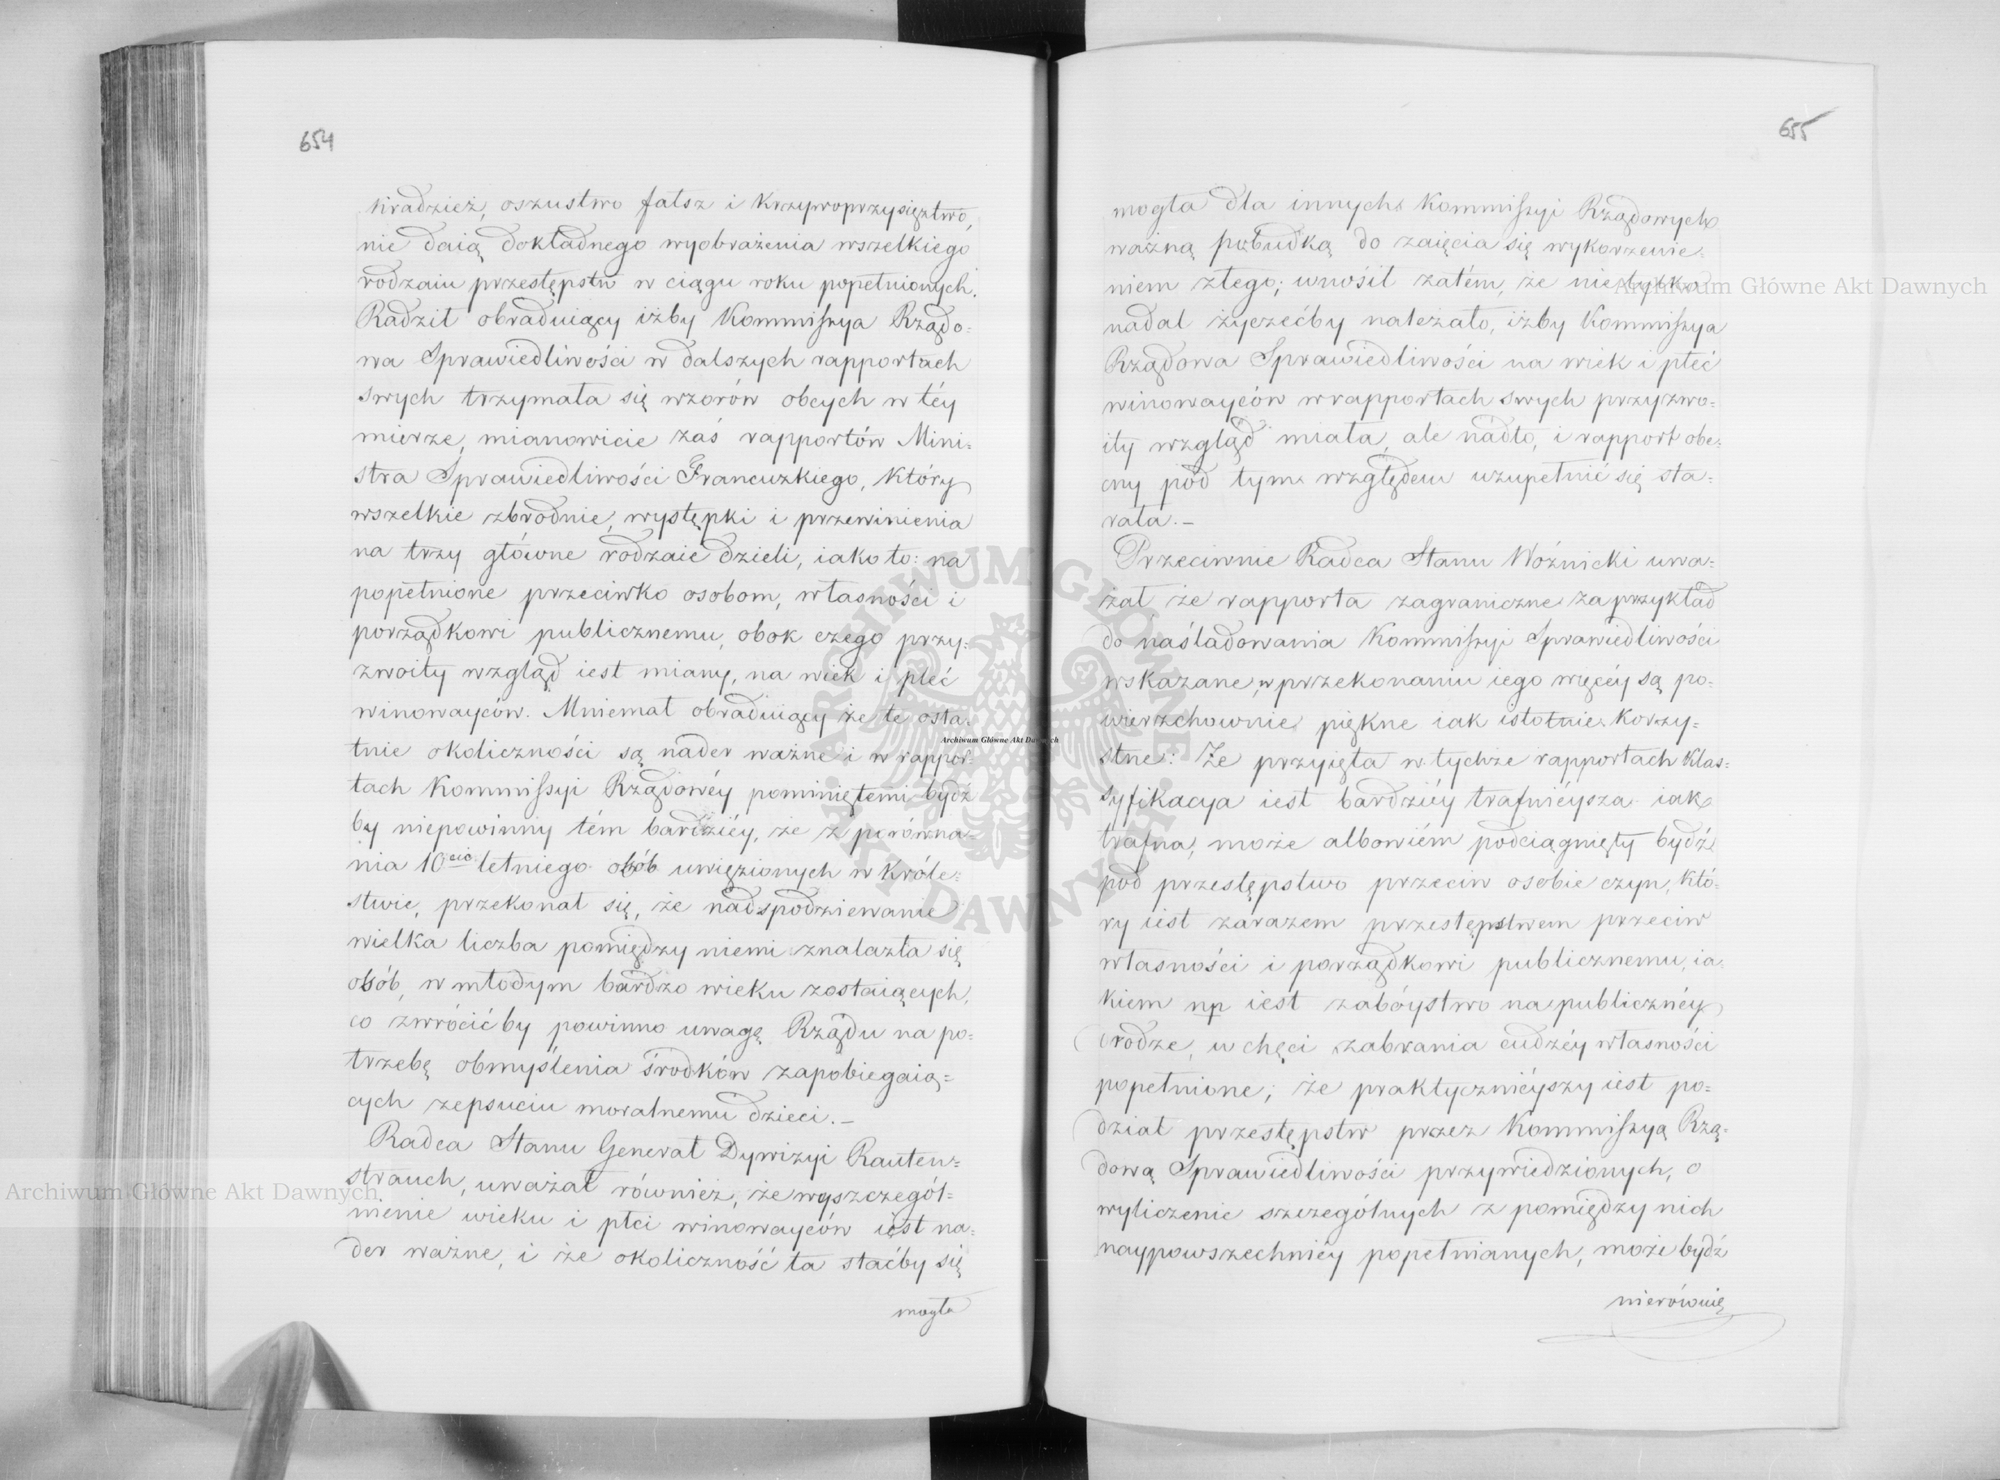 654
kradzież, oszustwo fałsz i krzywoprzysięztwo,
nie daią dokładnego wyobrażenia wszelkiego
rodzaiu przestępstw w ciągu roku popełnionych.
Radził obraduiący iżby Kommissya Rządo=
wa Sprawiedliwości w dalszych rapportach
swych trzymała się wzorów obcych w téy
mierze, mianowicie zaś rapportów Mini=
stra Sprawiedliwości Francuzkiego, który
wszelkie zbrodnie, występki i przewinienia
na trzy główne rodzaie dzieli, iako to: na
popełnione przeciwko osobom, własności i
porządkowi publicznemu, obok czego przy=
zwoity wzgląd iest miany, na wiek i płeć
winowayców. Mniemał obraduiący że te osta=
tnie okoliczności są nader ważne i w rappor=
tach Kommissyi Rządowéy pominiętemi bydź
by niepowinny tém bardziéy, że z porówna=
nia 10cio letniego osób uwięzionych w Króle=
stwie, przekonał się, że nadspodziewanie
wielka liczba pomiędzy niemi znalazła się
osób, w młodym bardzo wieku zostaiących,
co zwrócić by powinno uwagę Rządu na po=
trzebę obmyślenia środków zapobiegaią=
cych zepsuciu moralnemu dzieci.—
Radca Stanu Generał Dywizyi Rauten=
strauch, uważał również, że wyszczegól=
nienie wieku i płci winowayców iest na=
der ważne, i że okoliczność ta staćby się
mogła
655
mogła dla innych Kommissyi Rządowych
ważną pobudką do zaięcia się wykorzenie=
niem złego; wnosił zatém, że nietylko
nadal życzećby należało, iżby Kommissya
Rządowa Sprawiedliwości na wiek i płeć
winowayców w rapportach swych przyzwo=
ity wzgląd miała, ale nadto, i rapport obe=
cny pod tym względem uzupełnić się sta=
rała.—
Przeciwnie Radca Stanu Woźnicki uwa=
żał że rapporta zagraniczne za przykład
do naśladowania Kommissyi Sprawiedliwości
wskazane, w przekonaniu iego więcéy są po=
wierzchownie piękne iak istotnie korzy=
stne: Że przyięta w tychże rapportach klas=
syfikacya iest bardziéy trafnieysza iak
trafna, może albowiém podciągnięty bydź
pod przestępstwo przeciw osobie czyn, któ=
ry iest zarazem przestępstwem przeciw
własności i porządkowi publicznemu, ia
kiem np iest zabóystwo na publicznéy
drodze, w chęci zabrania cudzéy własności
popełnione; że praktycznieyszy iest po=
dział przestępstw przez Kommissyą Rzą=
dową Sprawiedliwości przywiedzionych, o
wyliczenie szczególnych z pomiędzy nich
naypowszechniéy popełnianych, może bydź
nierównie
Archiwum Główne Akt Dawnych
Archiwum Główne Akt Dawnych
Archiwum Główne Akt Dawnych
ARCHIWUM GŁÓWNE AKT DAWNYCH